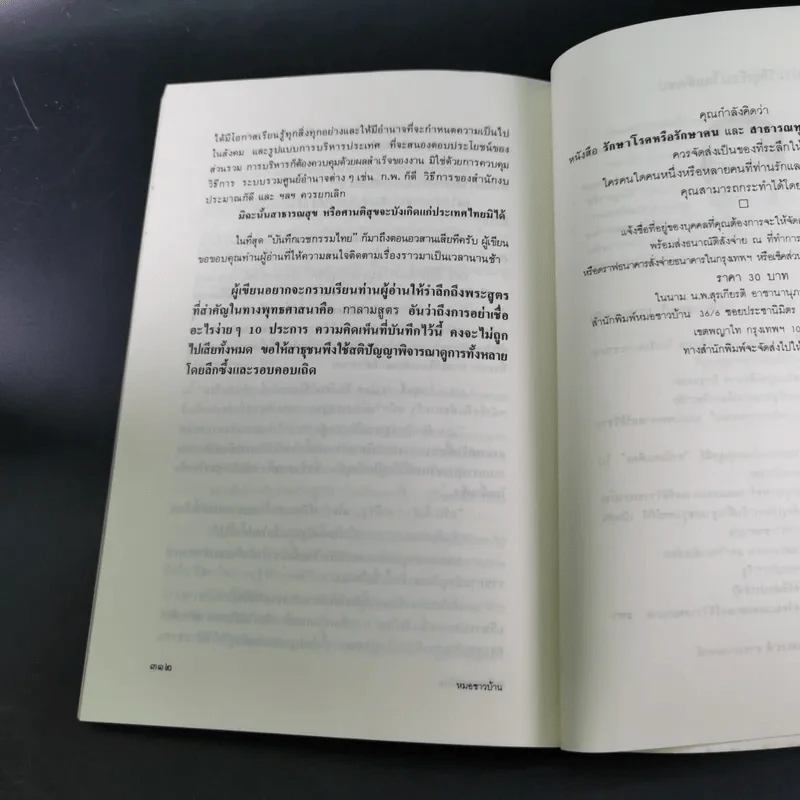 ให้มีโอกาสเรียนรู้ทุกสิ่งทุกอย่างและให้มีอำนาจที่จะกำหนดความเป็นไป
ในสังคม และรูปแบบการบริหารประเทศ ที่จะสนองตอบประโยชน์ของ
ส่วนรวม การบริหารก็ต้องควบคุมด้วยผลสำเร็จของงาน มิใช่ด้วยการควบคุม
วิธีการ ระบบรวมศูนย์อำนาจต่างๆ เช่น ก.พ. ก็ดี วิธีการของสำนักงบ
ประมาณก็ดี และ ฯลฯ ควรยกเลิก
มิฉะนั้นสาธารณสุข หรือศานติสุขจะบังเกิดแก่ประเทศไทยมิได้
ในที่สุด “บันทึกเวชกรรมไทย” ก็มาถึงตอนอวสานเสียทีครับ ผู้เขียน
ขอขอบคุณท่านผู้อ่านที่ให้ความสนใจติดตามเรื่องราวมาเป็นเวลานานช้า
ผู้เขียนอยากจะกราบเรียนท่านผู้อ่านให้รำลึกถึงพระสูตร
ที่สำคัญในทางพุทธศาสนาคือ กาลามสูตร อันว่าถึงการอย่าเชื่อ
อะไรง่ายๆ 10 ประการ ความคิดเห็นที่บันทึกไว้นี้ คงจะไม่ถูก
ไปเสียทั้งหมด ขอให้สาธุชนพึงใช้สติปัญญาพิจารณาดูการทั้งหลาย
โดยลึกซึ้งและรอบคอบเถิด
๓๑๒
หมอชาวบ้าน
คุณกำลังคิดว่า
หนังสือ รักษาโรคหรือรักษาคน และ สาธารณ
ควรจัดส่งเป็นของที่ระลึกให้
ใครคนใดคนหนึ่งหรือหลายคนที่ท่านรักและ
คุณสามารถกระทำได้โดย
แจ้งชื่อที่อยู่ของบุคคลที่คุณต้องการจะให้จัด
พร้อมส่งธนาณัติสั่งจ่าย ณ ที่ทำการ
หรือดราฟธนาคารสั่งจ่ายธนาคารในกรุงเทพฯ หรือเช็คส่วน
ราคา 30 บาท
ในนาม น.พ.สุรเกียรติ อาชานานุภา
สำนักพิมพ์หมอชาวบ้าน 36/6 ซอยประชานิมิตร
เขตพญาไท กรุงเทพฯ 10
ทางสำนักพิมพ์จะจัดส่งไปให้